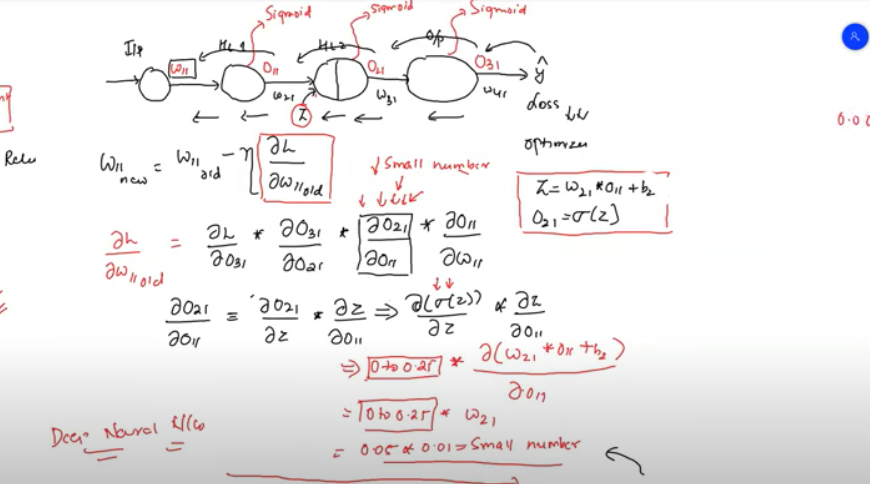 Sigmoid Sigmoid Sigmoid
I/p HL1 HL2 O/p
w₁₁ O₁₁ O₂₁ O₃₁ ŷ
w₂₁ w₃₁ w₄₁
Z
Loss ↓↓
optimizer
Relu
w₁₁new = w₁₁old - η ∂L/∂w₁₁old
↓ Small number
Z = w₂₁ * O₁₁ + b₂
O₂₁ = σ(z)
0.00
∂L/∂w₁₁old = ∂L/∂O₃₁ * ∂O₃₁/∂O₂₁ * ∂O₂₁/∂O₁₁ * ∂O₁₁/∂w₁₁
∂O₂₁/∂O₁₁ = ∂O₂₁/∂z * ∂z/∂O₁₁ ⇒ ∂(σ(z))/∂z * ∂z/∂O₁₁
⇒ 0 to 0.25 * ∂(w₂₁ * O₁₁ + b₂)/∂O₁₁
= 0 to 0.25 * w₂₁
= 0.05 * 0.01 = Small number
Deep Neural N/w